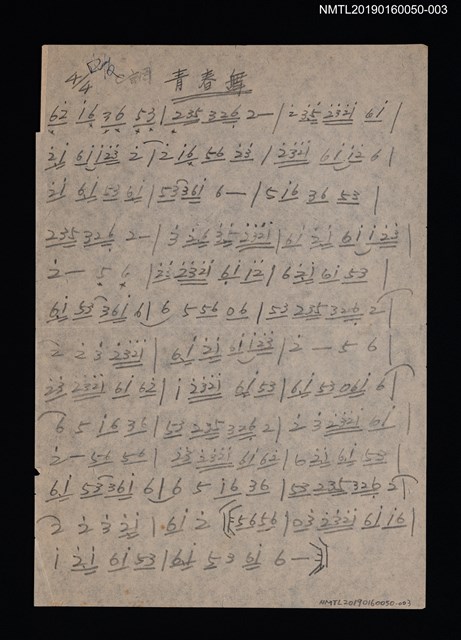 NMTL20190160050-003
4/4
青春舞
62 16 36 53 | 235 326 2— | 2 35 2321 61 |
21 61123 2 | 2 16 56 23 | 2321 61126 |
21 61 53 61 | 53361 6— | 516 36 53 |
235 326 2— | 3 26 35 2321 | 61 21 61123 |
2— 5 6 | 23 2321 61 12 | 6 21 61 53 |
61 53361 6 | 6 5 56 06 | 53 235 326 2
2 2 3 2321 | 61 21 61123 | 2— 5 6 |
23 2321 61 62 | 1 2321 61 53 | 61 53 061 6
6 5 16 36 | 53 235 326 2 | 2 3 2321 61 |
2— 56 56 | 23 2321 61 62 | 621 61 53 |
61 53361 6 | 6 5 16 36 | 53 235 326 2
2 2 3 21 | 61 2 | 5656 | 03 2321 61 16 |
1 21 61 53 | 61 53 61 6—
NMTL20190160050-003